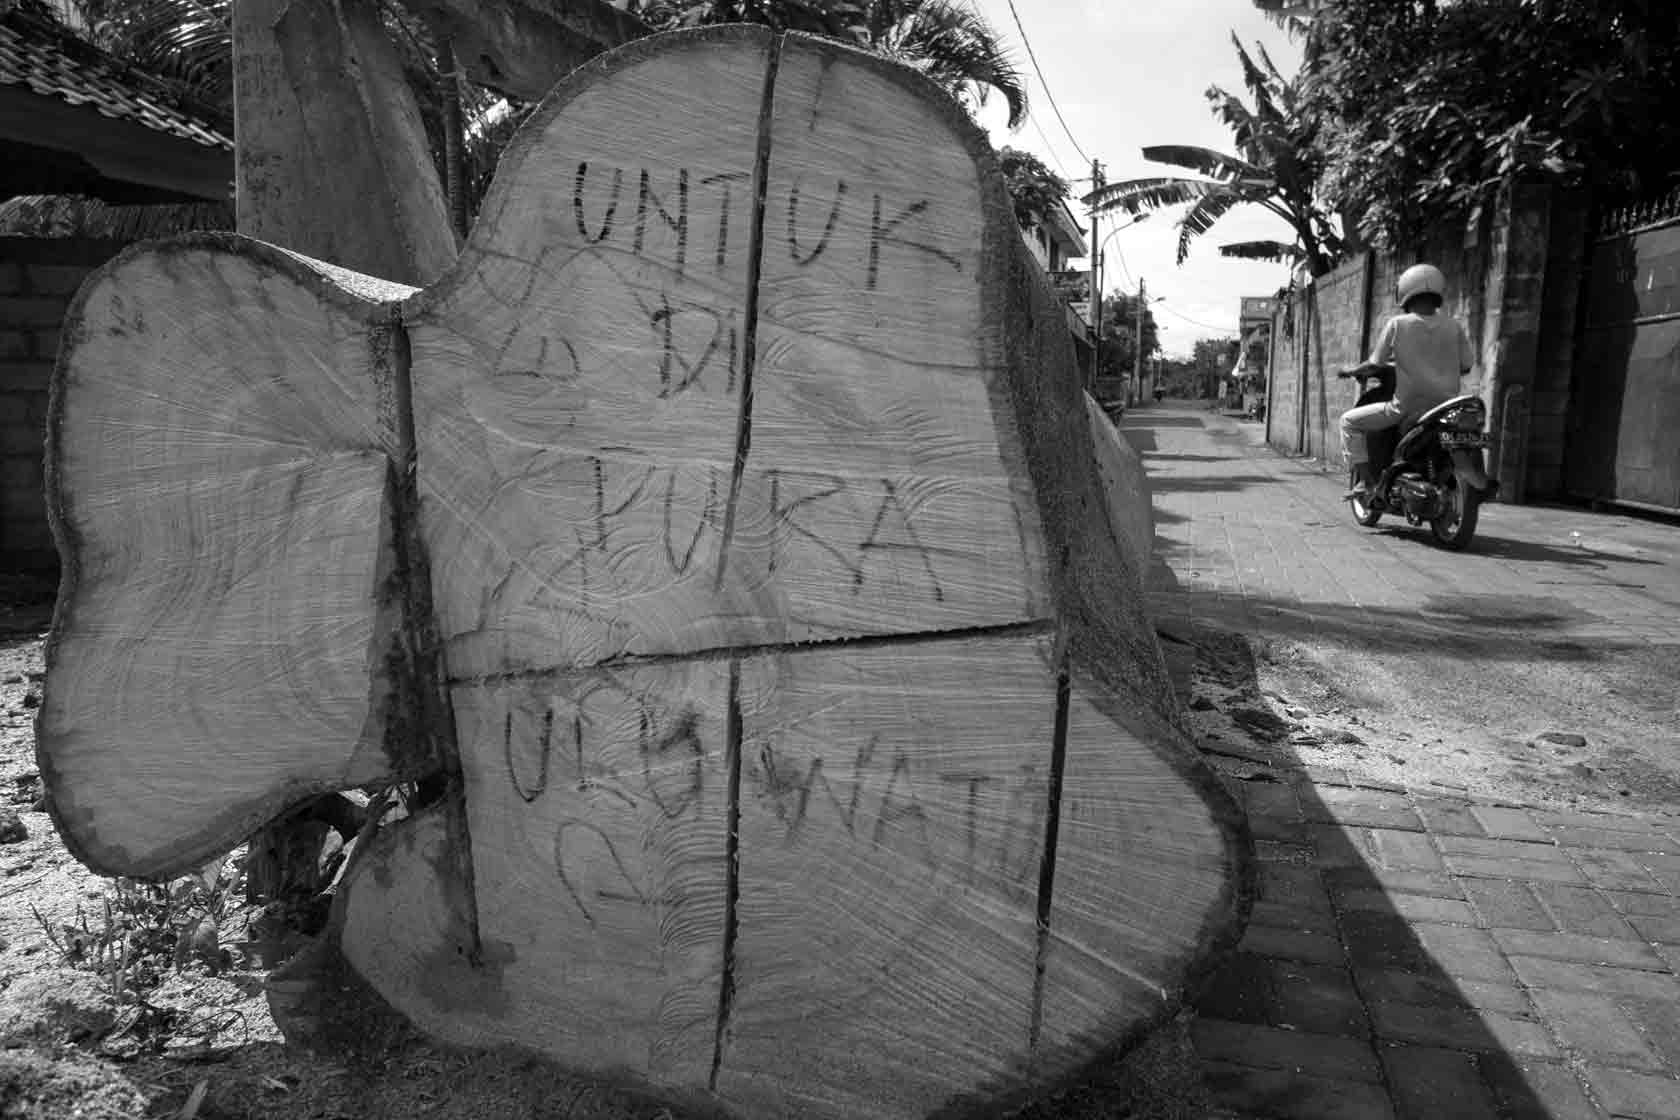 UNTUK
DI
PURA
ULU WATU